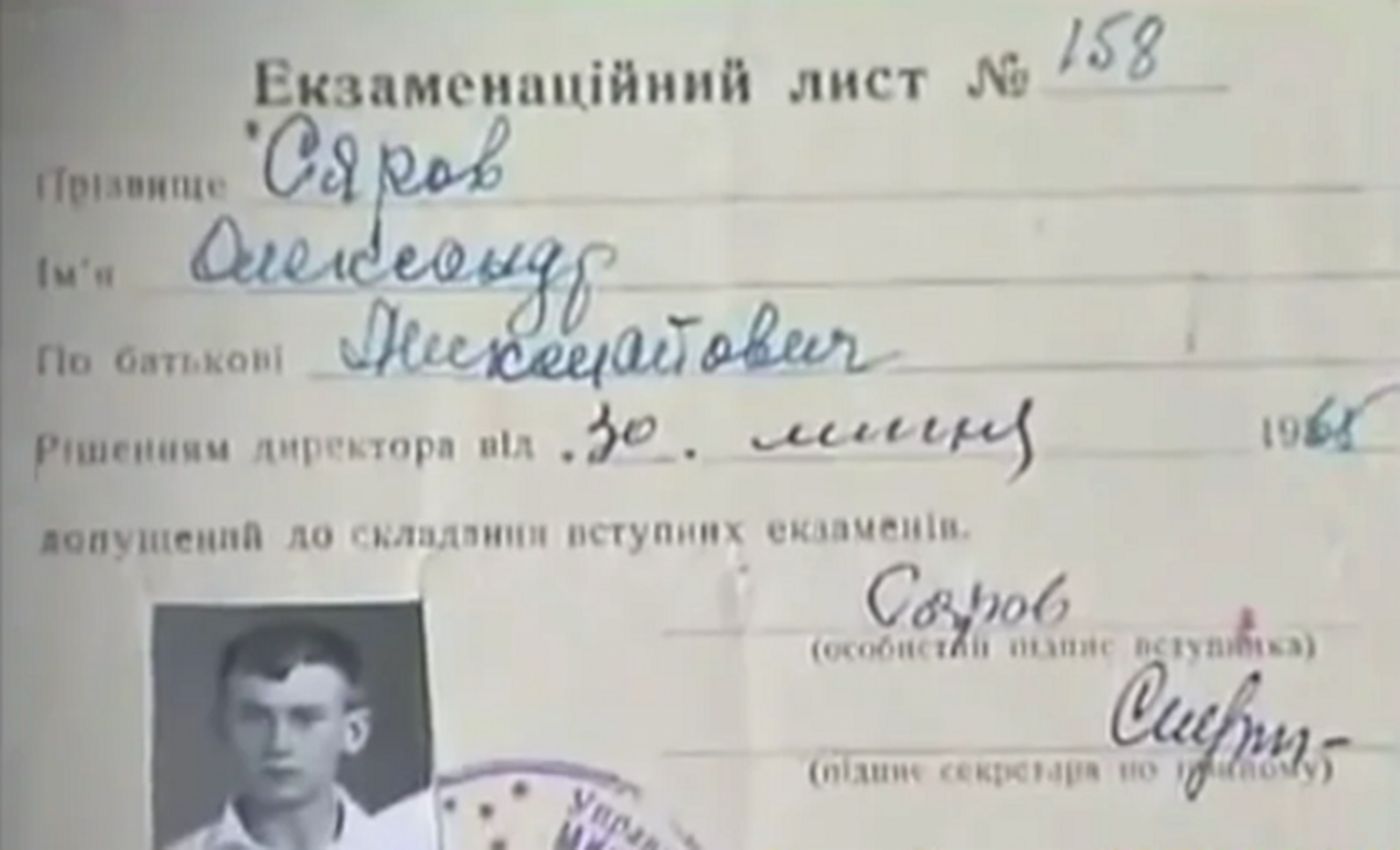 Екзаменаційний лист № 158
Прізвище Сяров
Ім'я Олександр
По батькові
Рішенням директора від "30" липня 1965
допущений до складання вступних екзаменів.
Сяров
(особистий підпис вступника)
(підпис секретаря по прийому)
Управ